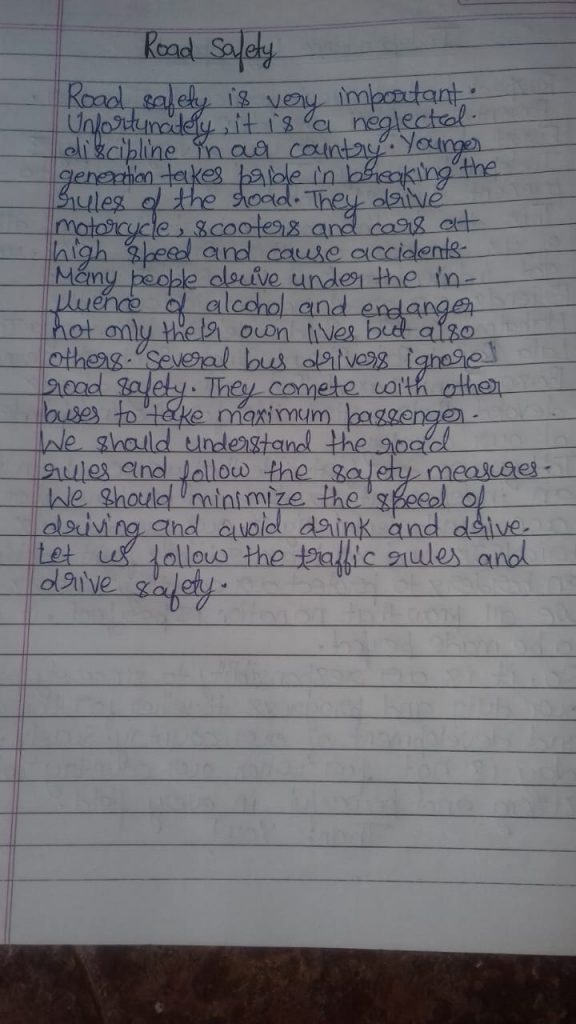 Road Safety
Road safety is very important.
Unfortunately, it is a neglected
discipline in our country. Younger
generation takes pride in breaking the
rules of the road. They drive
motorcycle, scooters and cars at
high speed and cause accidents.
Many people drive under the in-
fluence of alcohol and endanger
not only their own lives but also
others. Several bus drivers ignore
road safety. They comete with other
buses to take maximum passenger.
We should understand the road
rules and follow the safety measures.
We should minimize the speed of
driving and avoid drink and drive.
Let us follow the traffic rules and
drive safety.